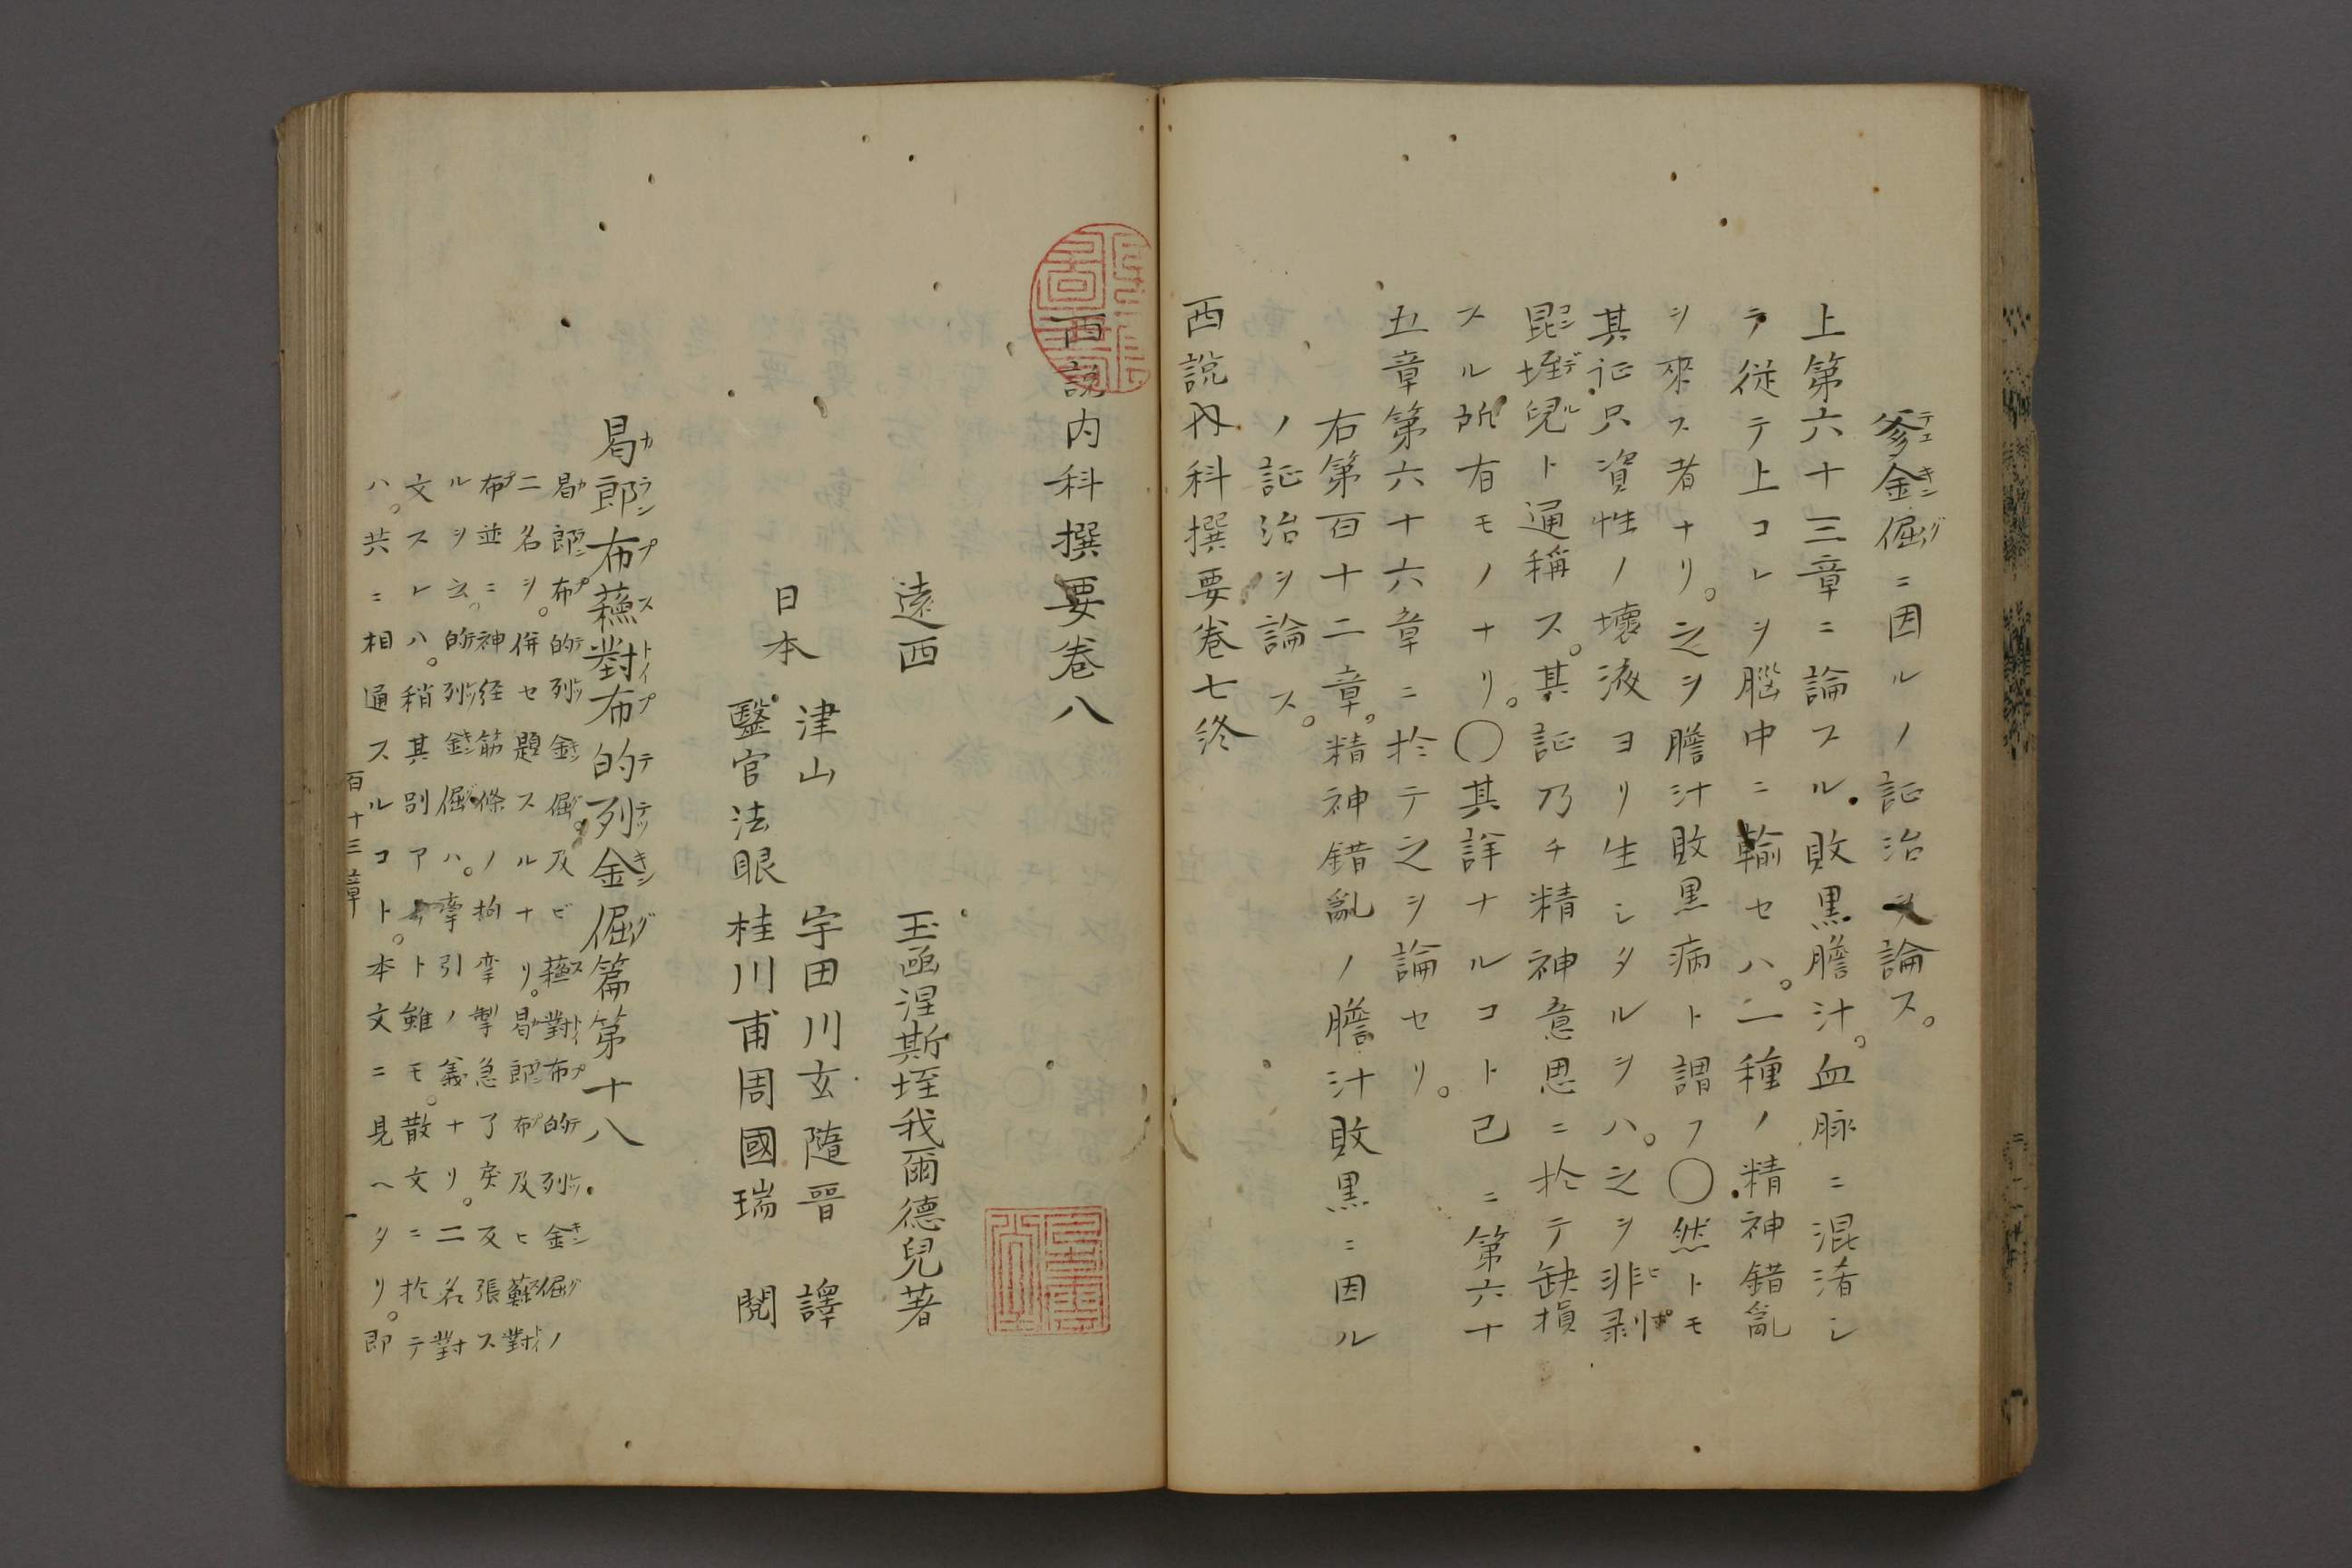 爹金倔ニ因ルノ証治ヲ論ス。
上第六十三章ニ論スル敗黒膽汁。血脉ニ混淆シ
テ従テ上コレヲ腦中ニ輸セハ。二種ノ精神錯亂
ヲ來ス者ナリ。之ヲ膽汁敗黒病ト謂フ〇然トモ
其証只資性ノ壞液ヨリ生シタルヲハ。之ヲ非剥
昆垤兒ト通稱ス。其証乃チ精神意思ニ於テ缺損
スル所有モノナリ。〇其詳ナルコト已ニ第六十
五章第六十六章ニ於テ之ヲ論セリ。
右第百十二章。精神錯亂ノ膽汁敗黒ニ因ル
ノ証治ヲ論ス。
西説内科撰要巻七終
西説内科撰要巻八
遠西 玉函涅斯垤我爾德兒著
日本 津山 宇田川玄隨晋 譯
醫官法眼 桂川甫周國瑞 閲
曷郎布蘓對布的列金倔篇第十八
曷郎布的列金倔。及ビ蘓對布的列金倔ノ
二名ヲ。併セ題スルナリ。曷郎布及ヒ蘓對
布並ニ神経筋條ノ拘攣掣急了戻及張ス
ルヲ云。的列金倔ハ。攣引ノ義ナリ。二名對
文スレハ。稍其別アリト雖モ。散文ニ於テ
ハ。共ニ相通スルコト。本文ニ見ヘタリ。即
百十三章